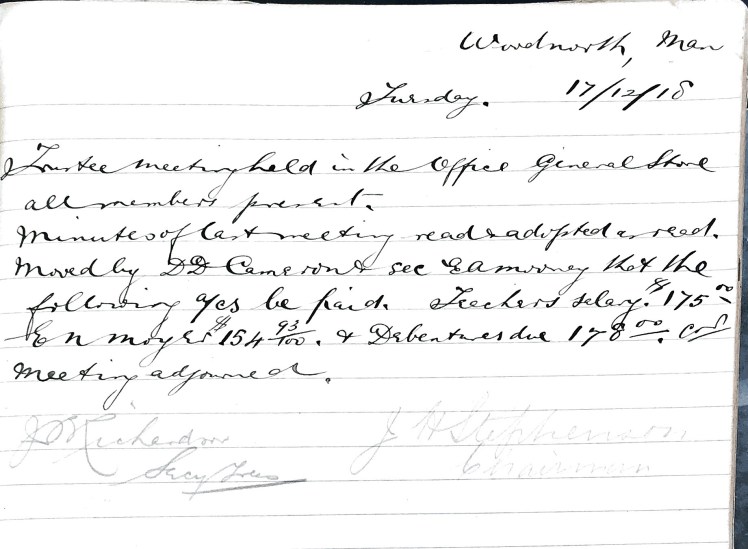 Woodnorth, Man
Tuesday. 17/12/18
Trustee meeting held in the Office General Store
all members present.
Minutes of last meeting read & adopted as read.
Moved by DD Cameron & sec EA Mooney that the
following a/cs be paid. Teechers selary. $175 00
E N Moyer $154 93/100. & Debentures due 178 00. Card
Meeting adjourned.
J Richardson J H Stephenson
Secy Treas Chairman